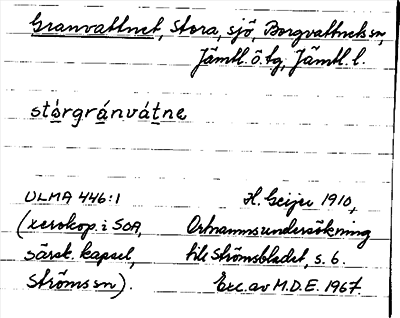 Granvattnet, Stora, sjö, Borgvattnets sn,
Jämtl. ö. tg, Jämtl. l.
stórgránvátne
ULMA 446:1 H. Geijer 1910,
(xerokop. i SOA, Ortnamnsundersökning
särsk. kapsel, till Strömsbladet, s. 6.
Ströms sn). Exc. av M.D.E. 1967.